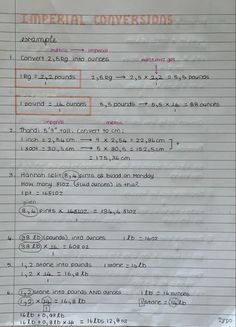 IMPERIAL CONVERSIONS
example
metric → imperial
1. Convert 2,5kg into ounces
1kg = 2,2 pounds 2,5kg → 2,5 × 2,2 = 5,5 pounds
1 pound = 16 ounces 5,5 pounds → 5,5 × 16 = 88 ounces
imperial metric
2. Thandi 5'9" tall. Convert to cm:
1 inch = 2,54cm → 9 × 2,54 = 22,86cm
1 foot = 30,5cm → 5 × 30,5 = 152,5cm
= 175,36cm
3. Hannah spilt 8,4 pints of blood on Monday
How many floz (fluid ounces) is this?
1pt = 16floz
8,4 pints × 16floz = 134,4 floz
4. 38 lb (pounds) into ounces 1 lb = 16oz
38 lb × 16 = 608 oz
5. 1,2 stone into pounds 1 stone = 14 lb
1,2 × 14 = 16,8 lb
6. 1,2 stone into pounds AND ounces 1 lb = 16 ounces
1,2 × 14 = 16,8 lb 1 stone = 14 lb
16 lb + 0,8 lb
16 lb + 0,8 lb × 16 = 16 lbs 12,8 oz